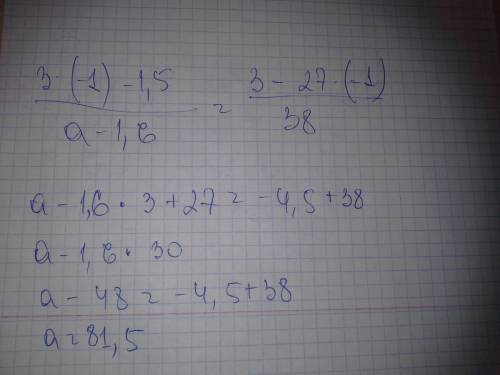 3·(-1)-1,5 / a-1,6 = 3-27·(-1) / 38
a-1,6·3+27=-4,5+38
a-1,6·30
a-48=-4,5+38
a=81,5